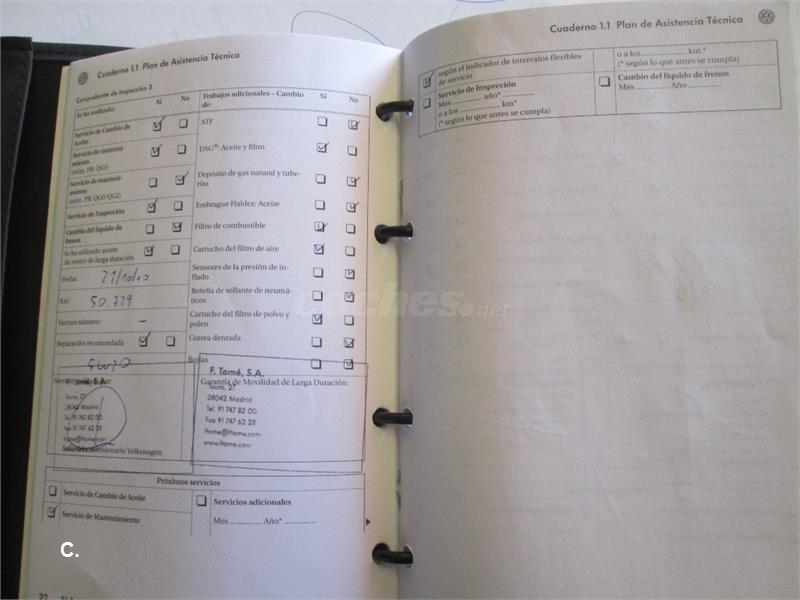 Cuaderno 1.1 Plan de Asistencia Técnica
Comprobante de Inspección 3
Se ha realizado:
Sí
No
Servicio de Cambio de
Aceite
Servicio de manteni-
miento
(núm. PR: QG1)
Servicio de manteni-
miento
(núm. PR: QG0/QG2)
Servicio de Inspección
Cambio del líquido de
frenos
Se ha utilizado aceite
de motor de larga duración
Fecha:
21/10/10
Km:
50.729
Factura número:
-
Reparación recomendada
Trabajos adicionales – Cambio
de:
Sí
No
ATF
DSG®: Aceite y filtro
Depósito de gas natural y tube-
rías
Embrague Haldex: Aceite
Filtro de combustible
Cartucho del filtro de aire
Sensores de la presión de in-
flado
Botella de sellante de neumá-
ticos
Cartucho del filtro de polvo y
polen
Correa dentada
Bujías
F. Tomé, S.A.
Tauro, 27
28042 Madrid
Tel. 91 747 82 00
Fax 91 747 62 28
ftome@ftome.com
Concesionario Volkswagen
F. Tomé, S.A.
Garantía de Movilidad de Larga Duración:
Tauro, 27
28042 Madrid
Tel. 91 747 82 00
Fax 91 747 62 28
ftome@ftome.com
www.ftome.com
Próximos servicios
Servicio de Cambio de Aceite
Servicio de Mantenimiento
Servicios adicionales
Mes .............. Año* ..............
C.
22
Cuaderno 1.1 Plan de Asistencia Técnica
según el indicador de intervalos flexibles
de servicio
Servicio de Inspección
Mes .............. año* ..............
o a los .............. km*
(*según lo que antes se cumpla)
o a los .............. km.*
(*según lo que antes se cumpla)
Cambio del líquido de frenos
Mes .............. Año ..............
coches.net